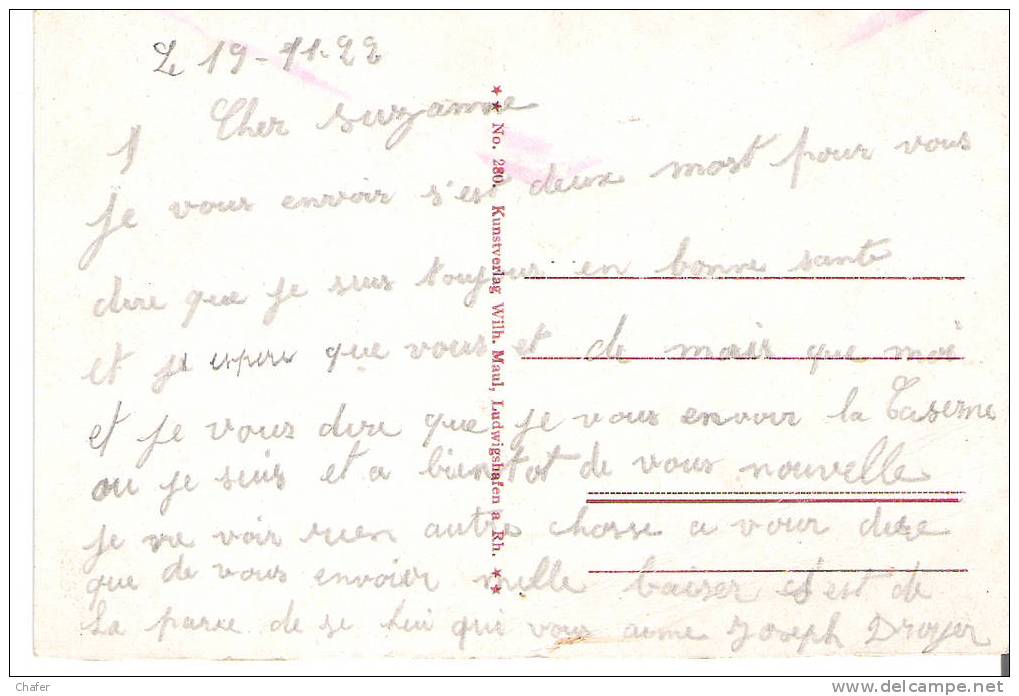 Le 19-11-22
Cher Suzanne
Je vous envoir s'est deux most pour vous
dire que je suis toujous en bonne sante
et je espere que vous et de mair que moi
et je vous dire que je vous envoir la Caserne
ou je suis et a bientot de vous nouvelle
je ve voir rien autre chosse a vour dire
que de vous envoier mille baiser s'est de
la pare de se lui qui vous aime Joseph Droyer
★★ No. 280. Kunstverlag Wilh. Maul, Ludwigshafen a Rh. ★★
Chafer
www.delcampe.net